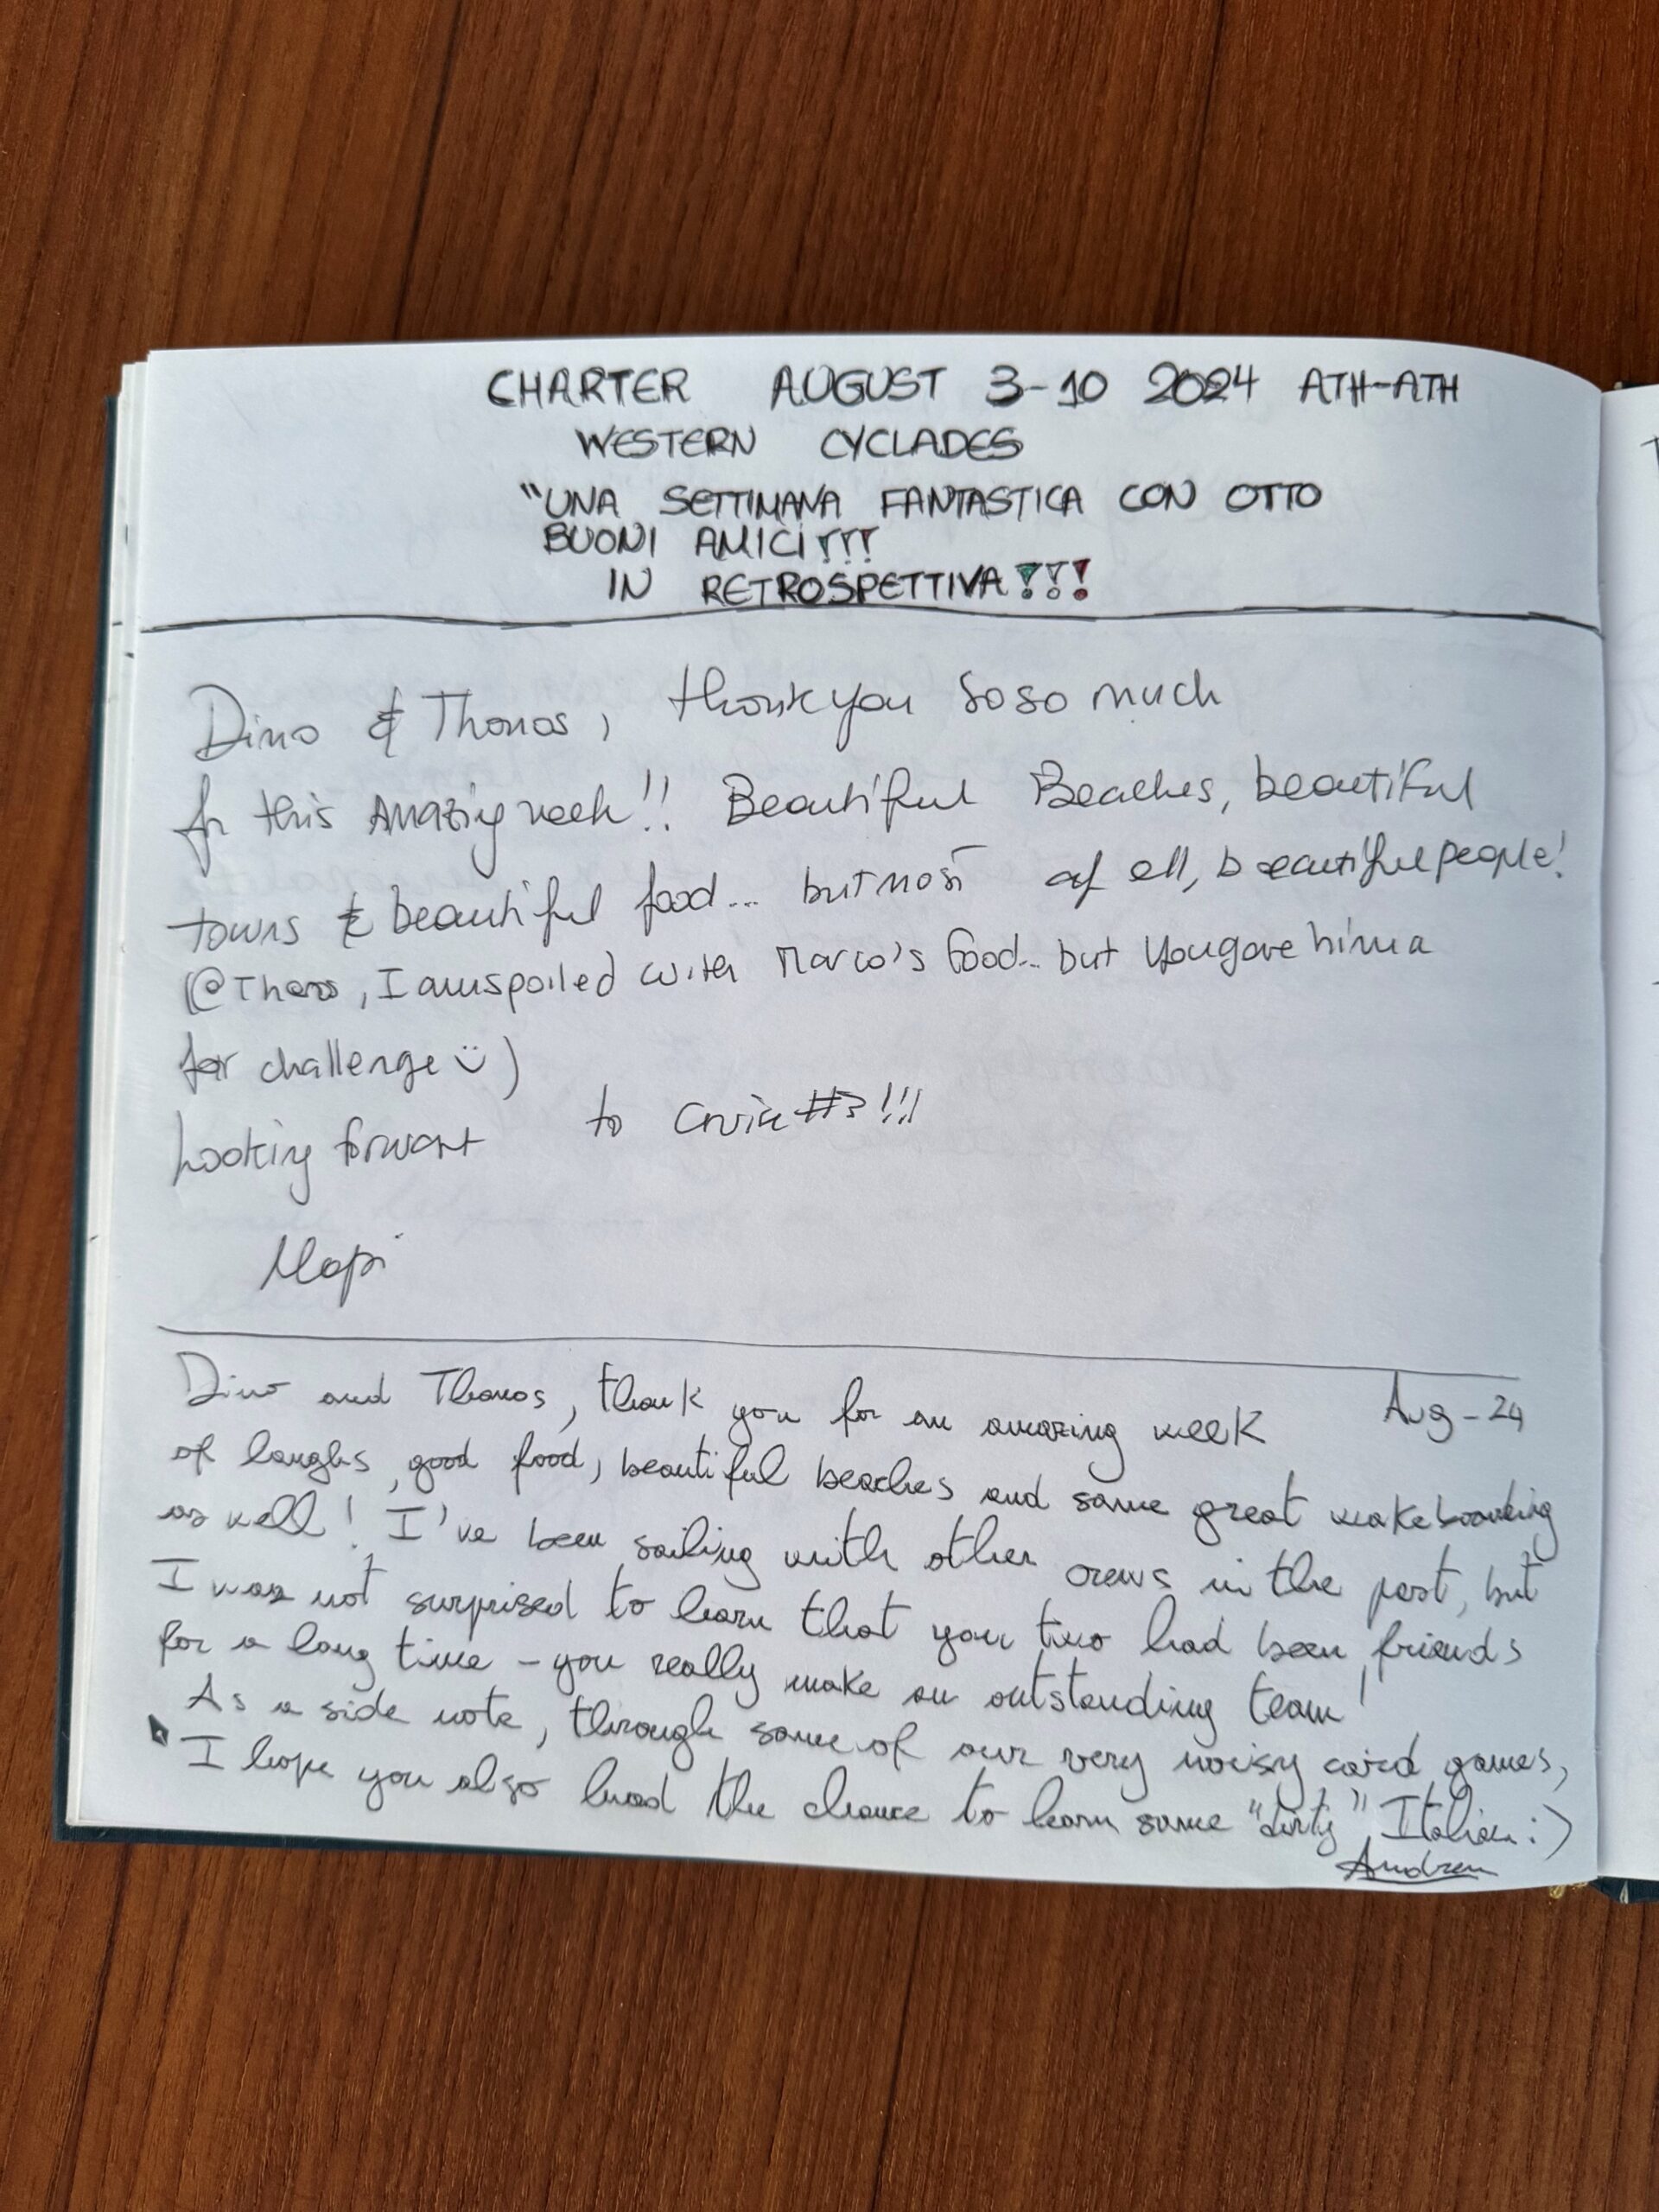 CHARTER AUGUST 3-10 2024 ATH-ATH
WESTERN CYCLADES
"UNA SETTIMANA FANTASTICA CON OTTO
BUONI AMICI!!!
IN RETROSPETTIVA!!!
Dino & Thanos, thank you so so much
for this Amazing week!! Beautiful Beaches, beautiful
towns & beautiful food... but most of all, beautiful people!
(@Thanos, I am spoiled with Marco's food... but you gave him a
for challenge :))
Looking forward to Cruise #3!!!
Mapi
Dino and Thanos, thank you for an amazing week Aug-24
of laughs, good food, beautiful beaches and some great wakeboarding
as well! I've been sailing with other crews in the past, but
I was not surprised to learn that you two had been friends
for a long time - you really make an outstanding team!
As a side note, through some of our very noisy card games,
I hope you also had the chance to learn some "dirty" Italian :)
Andrea